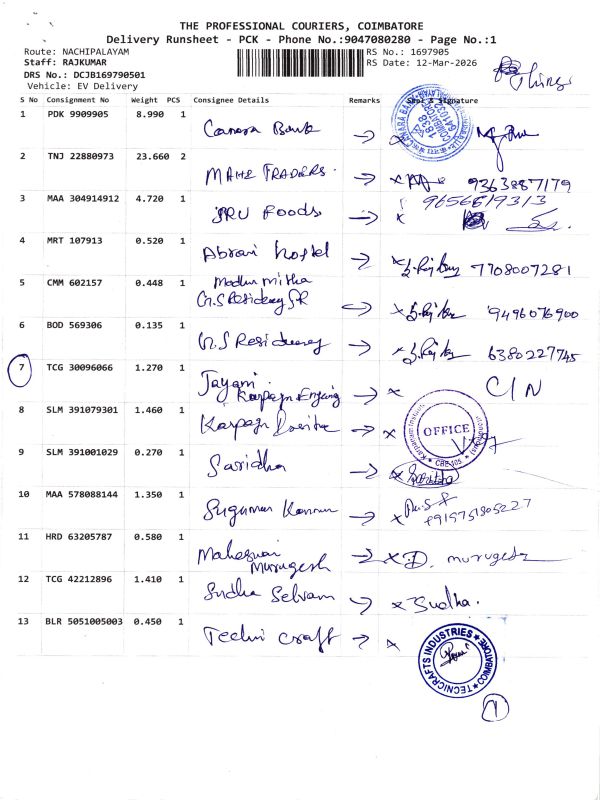 THE PROFESSIONAL COURIERS, COIMBATORE
Delivery Runsheet - PCK - Phone No.:9047080280 - Page No.:1
Route: NACHIPALAYAM RS No.: 1697905
Staff: RAJKUMAR RS Date: 12-Mar-2026
DRS No.: DCJB169790501
Vehicle: EV Delivery
S No Consignment No Weight PCS Consignee Details Remarks Seal & Signature
1 PDK 9909905 8.990 1 Canara Bank
2 TNJ 22880973 23.660 2 MAHE TRADERS. 9363887179
3 MAA 304914912 4.720 1 SRU Foods 9656819313
4 MRT 107913 0.520 1 Abrami hostel 7708007281
5 CMM 602157 0.448 1 Madhu mitha
9496076900
6 BOD 569306 0.135 1 G.S Residency 6380227745
7 TCG 30096066 1.270 1 Jayani. C/N
Karpagn
8 SLM 391079301 1.460 1 Karpagn
OFFICE
CBE-105
9 SLM 391001029 0.270 1 Saridha
10 MAA 578088144 1.350 1 Sugumar Kannan
11 HRD 63205787 0.580 1 Maheswari D. murugesh
Murugesh
12 TCG 42212896 1.410 1 Sudha Selvam Sudha.
13 BLR 5051005003 0.450 1 Techni craft
TECNICRAFTS INDUSTRIES COIMBATORE
1